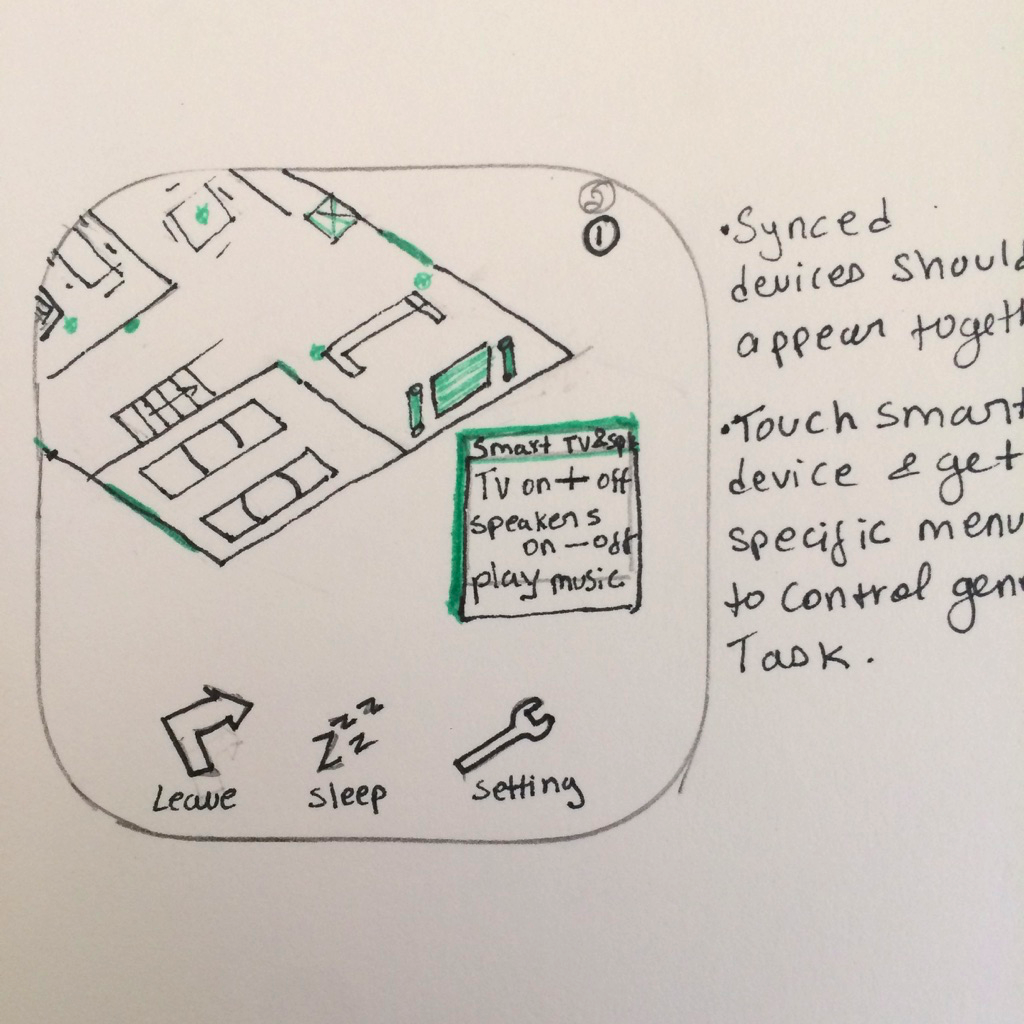 2
1
Smart TV & spk
TV on + off
speakers
on — off
play music
Leave
sleep
setting
• Synced
devices should
appear togeth
• Touch smart
device & get
specific menu
to control gen
Task.